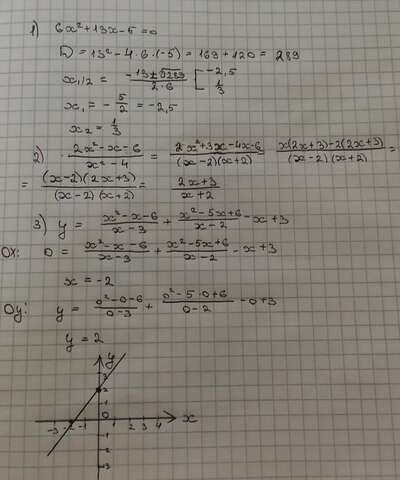 1) 6x²+13x-5=0
D = 13² - 4·6·(-5) = 169 + 120 = 289
x₁,₂ = (-13±√289)/(2·6) [ -2,5 1/3
x₁ = - 5/2 = -2,5
x₂ = 1/3
2) · (2x²-x-6)/(x²-4) = (2x²+3x-4x-6)/((x-2)(x+2)) (x(2x+3)-2(2x+3))/((x-2)(x+2)) =
= ((x-2)(2x+3))/((x-2)(x+2)) = (2x+3)/(x+2)
3) y = (x²-x-6)/(x-3) + (x²-5x+6)/(x-2) - x + 3
Ox: 0 = (x²-x-6)/(x-3) + (x²-5x+6)/(x-2) - x + 3
x = -2
Oy: y = (0²-0-6)/(0-3) + (0²-5·0+6)/(0-2) - 0 + 3
y = 2
y
3
2
1
-3 -2 -1 0 1 2 3 4 x
-1
-2
-3